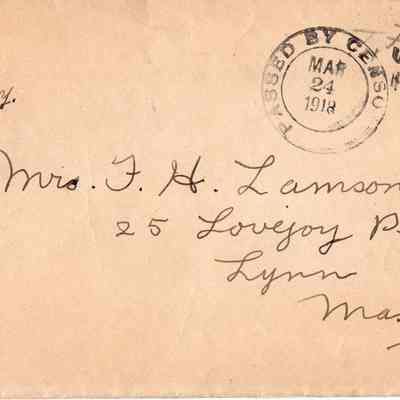 PASSED BY CENSO
MAR
24
1918
y.
Mrs. F. H. Lamson
25 Lovejoy P
Lynn
Mas